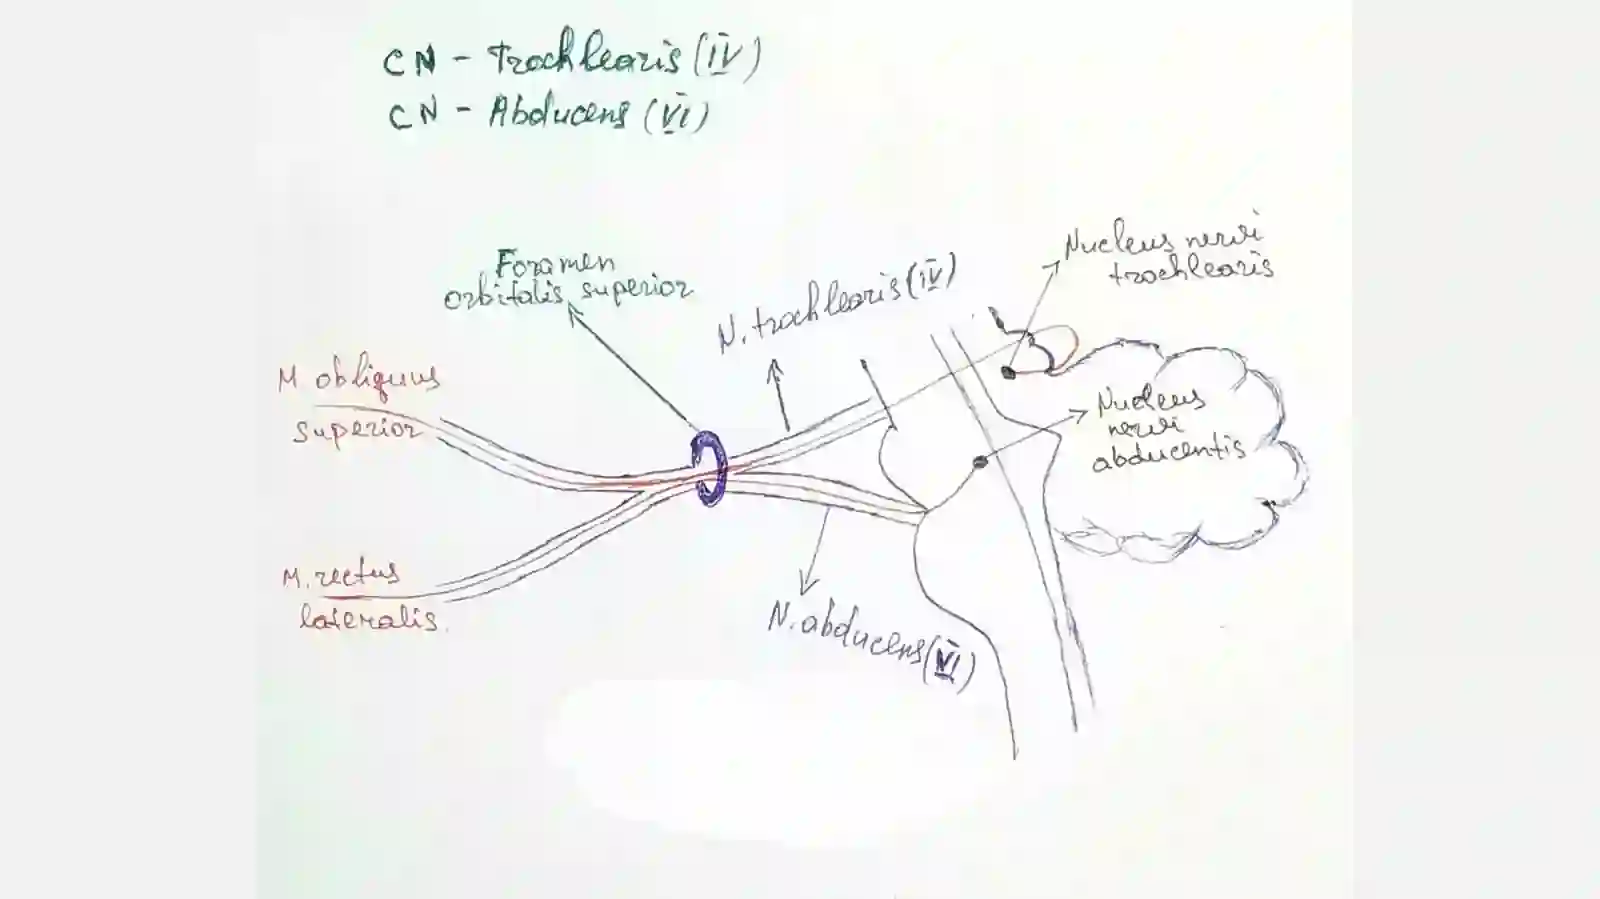 CN - Trochlearis (IV)
CN - Abducens (VI)
Foramen
orbitalis superior
N. trochlearis (IV)
Nucleus nervi
trochlearis
M. obliquus
superior
Nucleus
nervi
abducentis
M. rectus
lateralis.
N. abducens (VI)